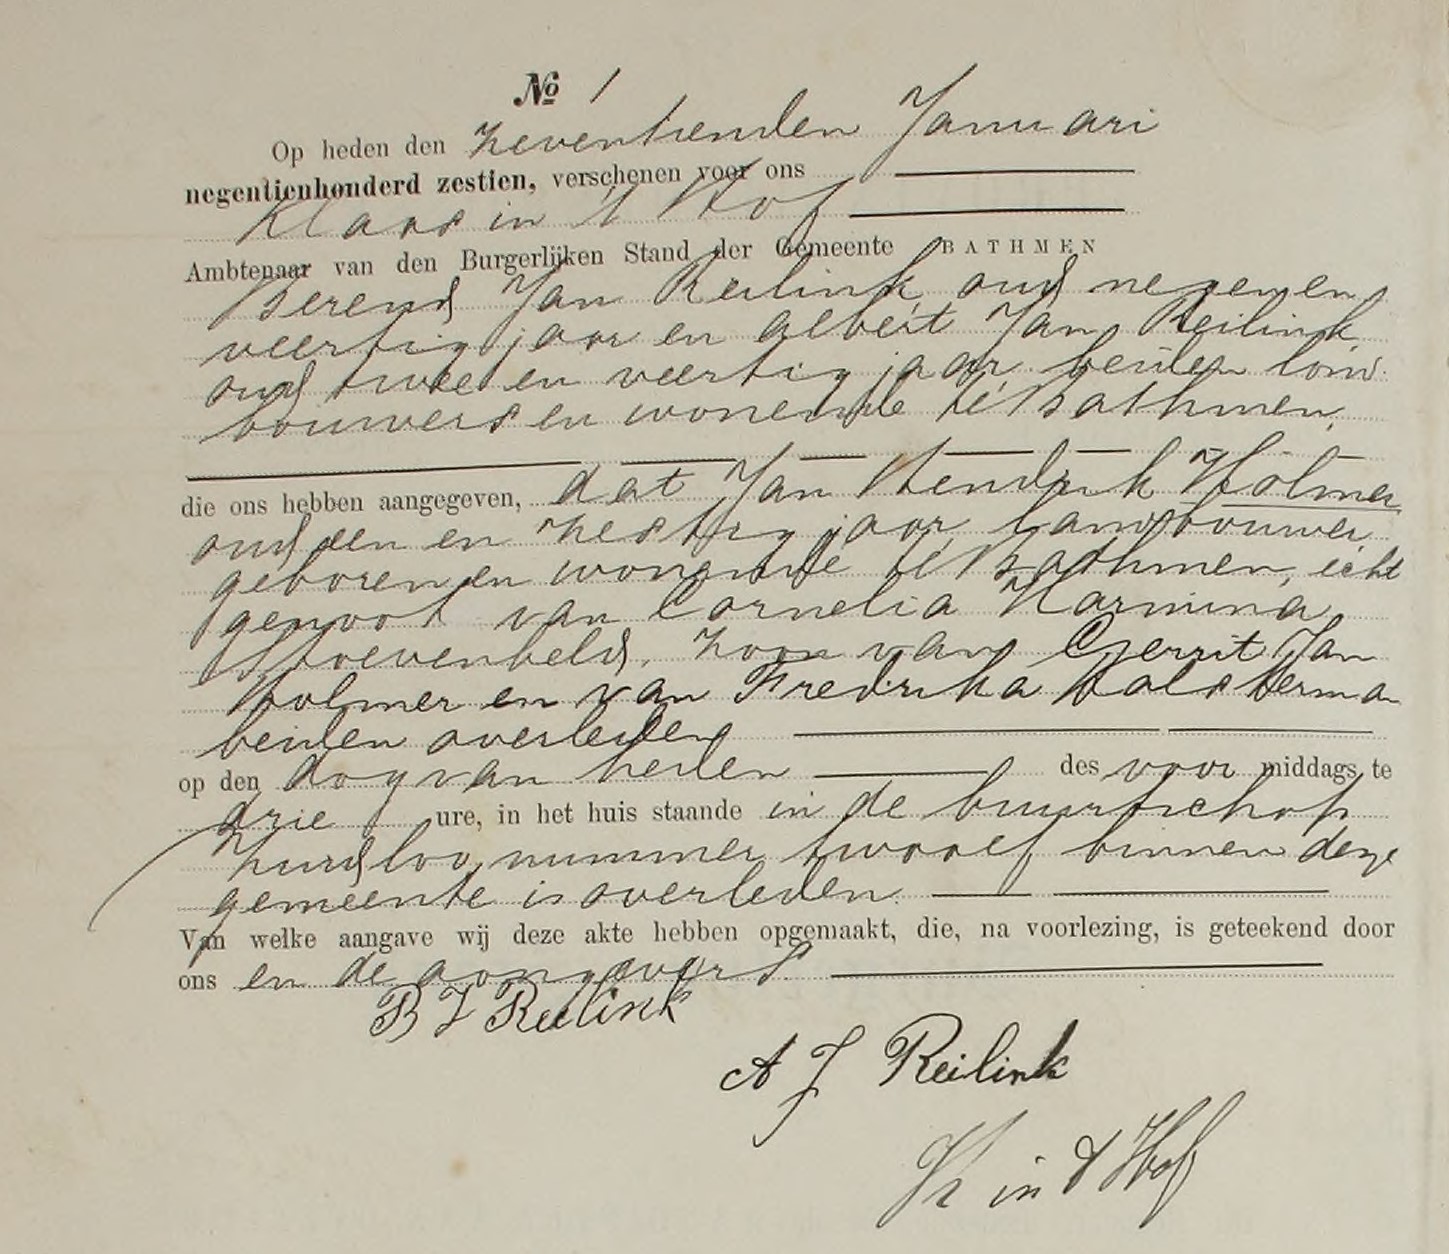 № 1
Op heden den zeventienden Januari
negentienhonderd zestien, verschenen voor ons
Klaas in 't Hof
Ambtenaar van den Burgerlijken Stand der Gemeente BATHMEN
Berend Jan Reilink oud negen en
veertig jaar en Albert Jan Reilink
oud twee en veertig jaar beiden land
bouwers en wonende te Bathmen,
die ons hebben aangegeven, dat Jan Hendrik Holmer
oud een en zestig jaar, landbouwer
geboren en wonende te Bathmen, echt
genoot van Cornelia Harmina
Stoevenbeld, zoon van Gerrit Jan
Holmer en van Fredrika
beiden overleden
op den dag van heden des voor middags te
drie ure, in het huis staande in de buurtschap
Zuidloo nummer twaalf binnen deze
gemeente is overleden.
Van welke aangave wij deze akte hebben opgemaakt, die, na voorlezing, is geteekend door
ons en de aangevers
B J Reilink
A J Reilink
K in 't Hof